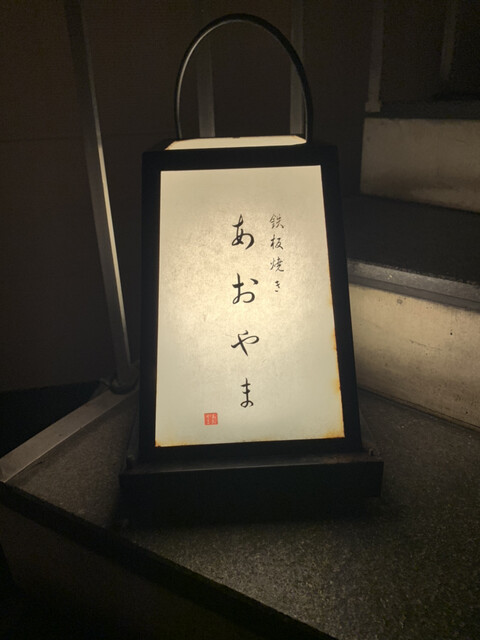 鉄板焼き
あおやま